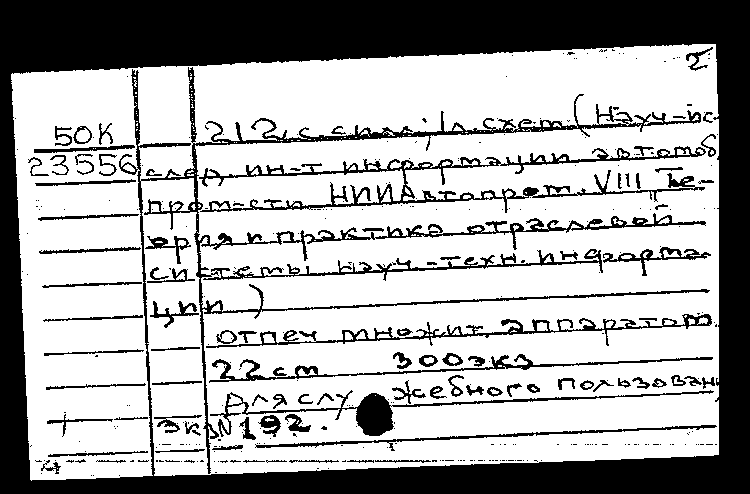 2
50К 212 с. с илл; 1 л. схем (Науч-ис-
23556 след. ин-т информации автомоб.
пром-сти НИИАвтопром. VIII Те-
ория и практика отраслевой
системы науч.-техн. информа-
ции)
отпеч множит. аппаратом.
22 см 300 экз
Для служебного пользован
экз № 192.